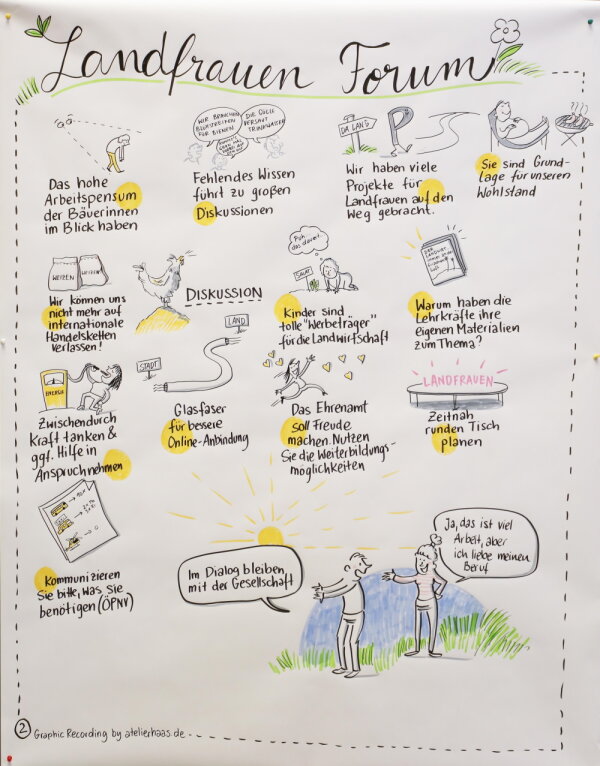 Landfrauen Forum
Das hohe
Arbeitspensum
der Bäuerinnen
im Blick haben
WIR BRAUCHEN
BLÜHSTREIFEN
FÜR BIENEN
DIE GÜLLE
VERSAUT
TRINKWASSER
Fehlendes Wissen
führt zu großen
Diskussionen
DA LANG
P
Wir haben viele
Projekte für
Landfrauen auf den
Weg gebracht.
Sie sind Grund-
lage für unseren
Wohlstand
WEIZEN
Wir können uns
nicht mehr auf
internationale
Handelsketten
verlassen!
DISKUSSION
Puh
das dauert
SALAT
Kinder sind
tolle "Werbeträger"
für die Landwirtschaft
Warum haben die
Lehrkräfte ihre
eigenen Materialien
zum Thema?
ENERGIE
Zwischendurch
Kraft tanken &
ggf. Hilfe in
Anspruch nehmen
STADT
LAND
Glasfaser
für bessere
Online-Anbindung
Das Ehrenamt
soll Freude
machen. Nutzen
Sie die Weiterbildungs-
möglichkeiten
LANDFRAUEN
Zeitnah
runden Tisch
planen
Kommunizieren
Sie bitte, was sie
benötigen (ÖPNV)
Im Dialog bleiben
mit der Gesellschaft
Ja, das ist viel
Arbeit, aber
ich liebe meinen
Beruf
2 Graphic Recording by atelierhaas.de